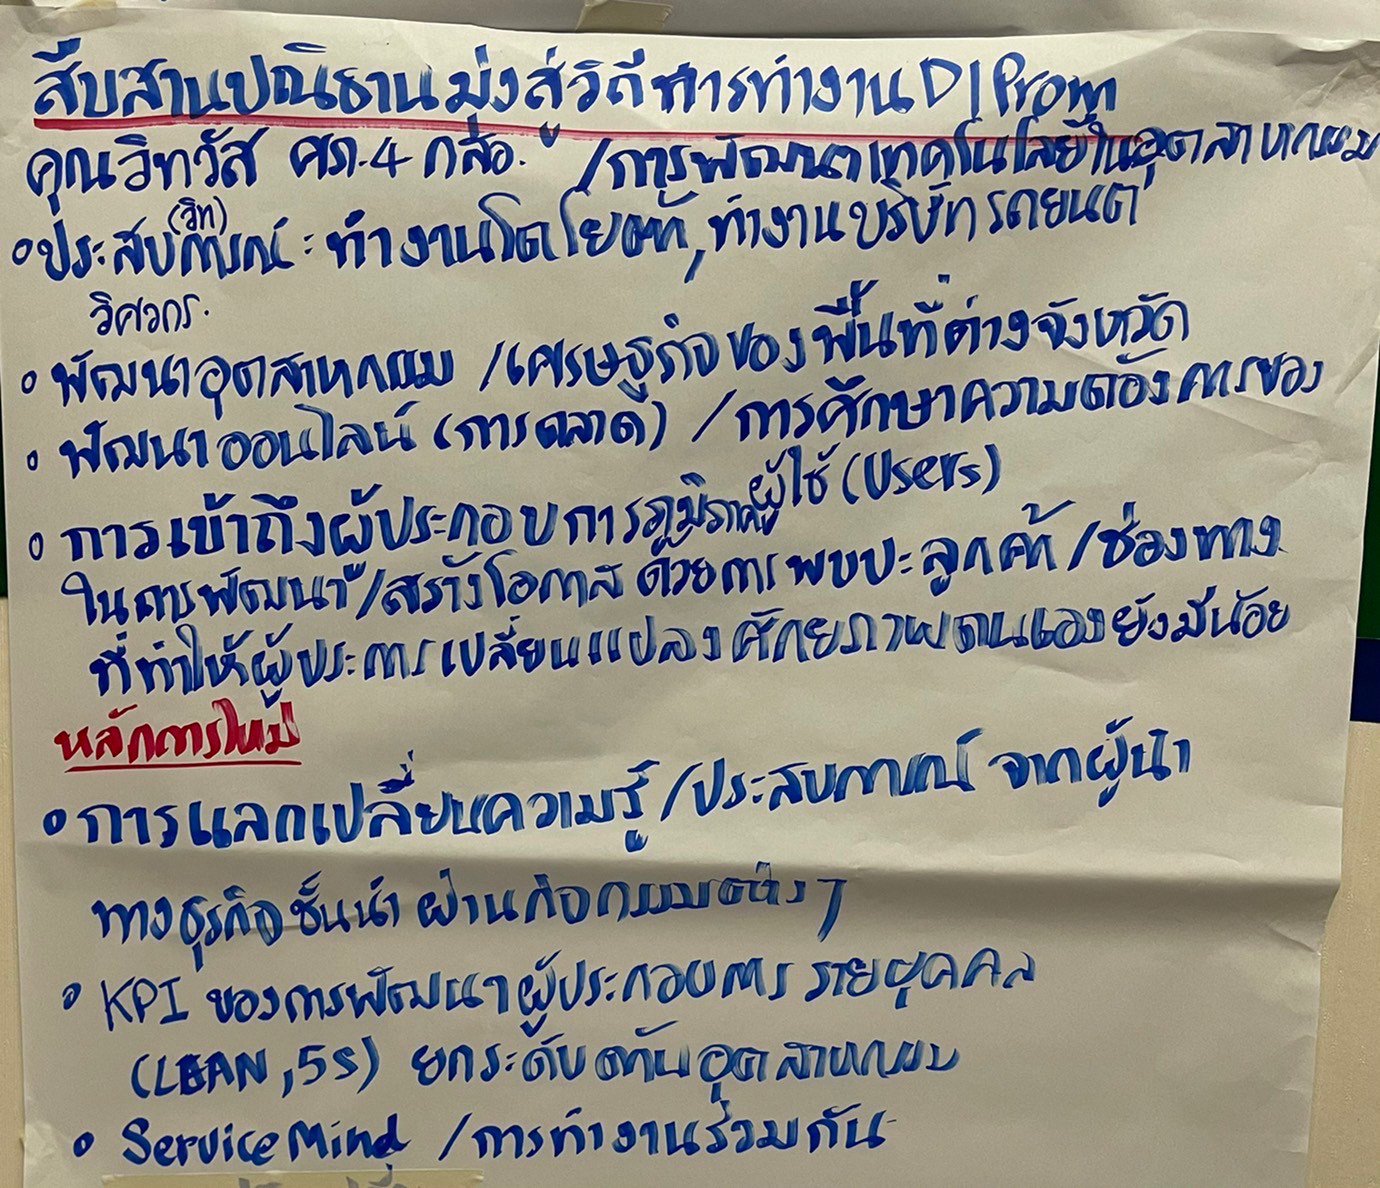 สืบสานปณิธาน มุ่งสู่วิถีการทำงาน DIProm
คุณวิทวัส ศภ.4 กสอ. /การพัฒนาเทคโนโลยีในอุตสาหกรรม
(วิท)
• ประสบการณ์ : ทำงานโตโยต้า, ทำงานบริษัทรถยนต์
วิศวกร.
• พัฒนาอุตสาหกรรม /เศรษฐกิจของพื้นที่ต่างจังหวัด
• พัฒนาออนไลน์ (การตลาด) /การศึกษาความต้องการของ
ผู้ใช้ (Users)
• การเข้าถึงผู้ประกอบการภูมิภาค
ในการพัฒนา /สร้างโอกาส ด้วยการพบปะลูกค้า /ช่องทาง
ที่ทำให้ผู้ประการเปลี่ยนแปลงศักยภาพตนเองยังมีน้อย
หลักการใหม่
• การแลกเปลี่ยนความรู้ /ประสบการณ์ จากผู้นำ
ทางธุรกิจชั้นนำ ผ่านกิจกรรมต่างๆ
• KPI ของการพัฒนาผู้ประกอบการ รายบุคคล
(LEAN, 5S) ยกระดับด้านอุตสาหกรรม
• Service Mind /การทำงานร่วมกัน